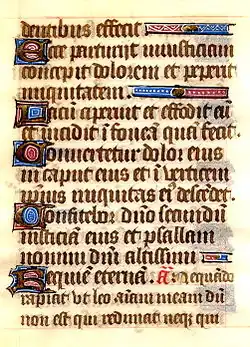 dentibus effecit
Ecce parturiit iniusticiam
concepit dolorem et peperit
iniquitatem
Lacū aperuit et effodit eū
et incidit ī foueā quā fecit
Conuertetur dolor eius
in caput eius et ī verticem
ipsius iniquitas eius descēdet
Confitebor dño secundū
iusticiā eius et psallam
nomini dñi altissimi
Requiē eternā a Nequando
rapiat vt leo aīam meam dū
non est qui redimat neqz qui